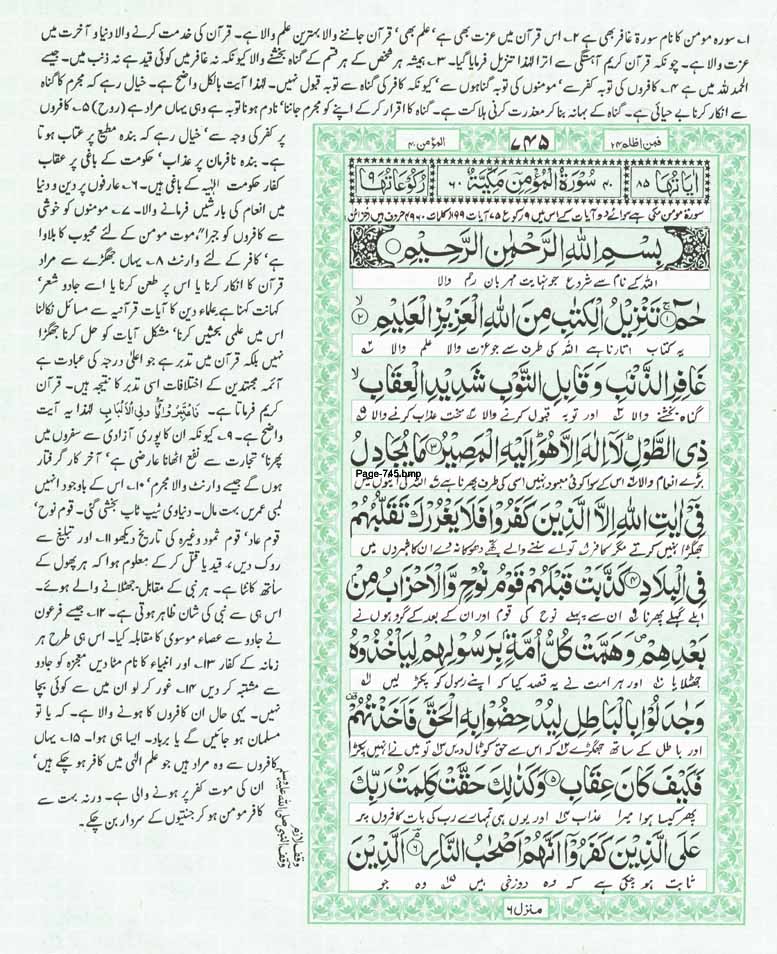 ۱۔ سورہ مومن کا نام سورۃ غافر بھی ہے ۲۔ اس قرآن میں عزت بھی ہے‘ علم بھی‘ قرآن جاننے والا بہترین علم والا ہے۔ قرآن کی خدمت کرنے والا دنیا و آخرت میں
عزت والا ہے۔ چونکہ قرآن کریم آہستگی سے اترا لہٰذا تنزیل فرمایا گیا۔ ۳۔ ہمیشہ ہر شخص کے ہر قسم کے گناہ بخشنے والا کیونکہ نہ غافر میں کوئی قید ہے نہ ذنب میں۔ جیسے
الحمد للہ میں ہے ۴۔ کافروں کی توبہ کفر سے‘ مومنوں کی توبہ گناہوں سے‘ کیونکہ کافر کی گناہ سے توبہ قبول نہیں۔ لہٰذا آیت بالکل واضح ہے۔ خیال رہے کہ مجرم کا گناہ
سے انکار کرنا بے حیائی ہے۔ گناہ کے بہانہ بنا کر معذرت کرنی ہلاکت ہے۔ گناہ کا اقرار کر کے اپنے کو مجرم جاننا‘ نادم ہونا توبہ ہے وہی یہاں مراد ہے (روح) ۵۔ کافروں
پر کفر کی وجہ سے‘ خیال رہے کہ بندہ مطیع پر عتاب ہوتا
ہے۔ بندہ نافرمان پر عذاب‘ حکومت کے باغی پر عقاب
کفار حکومت الہٰیہ کے باغی ہیں۔ ۶۔ عارفوں پر دین و دنیا
میں انعام کی بارشیں فرمانے والا۔ ۷۔ مومنوں کو خوشی
سے کافروں کو جبرا"‘ موت مومن کے لئے محبوب کا بلاوا
ہے‘ کافر کے لئے وارنٹ ۸۔ یہاں جھگڑے سے مراد
قرآن کا انکار کرنا یا اس پر طعن کرنا یا اسے جادو شعر‘
کہانت کہنا ہے علماء دین کا آیات قرآنیہ سے مسائل نکالنا
اس میں علمی بحثیں کرنا‘ مشکل آیات کو حل کرنا جھگڑا
نہیں بلکہ قرآن میں تدبر ہے جو اعلیٰ درجہ کی عبادت ہے
آئمہ مجتہدین کے اختلافات اسی تدبر کا نتیجہ ہیں۔ قرآن
کریم فرماتا ہے۔ لہٰذا یہ آیت
واضح ہے۔ ۹۔ کیونکہ ان کا پوری آزادی سے سفروں میں
پھرنا‘ تجارت سے نفع اٹھانا عارضی ہے‘ آخر کار گرفتار
ہوں گے جیسے وارنٹ والا مجرم‘ ۱۰۔ اس کے باوجود انہیں
لمبی عمریں بہت مال۔ دنیاوی ٹیپ ٹاپ بخشی گئی۔ قوم نوح‘
قوم عاد‘ قوم ثمود وغیرہ کی تاریخ دیکھو ۱۱۔ اور تبلیغ سے
روک دیں، قید یا قتل کر کے معلوم ہوا کہ ہر پھول کے
ساتھ کانٹا ہے۔ ہر نبی کے مقابل جھٹلانے والے ہوئے۔
اس ہی سے نبی کی شان ظاہر ہوتی ہے۔ ۱۲۔ جیسے فرعون
نے جادو سے عصاء موسوی کا مقابلہ کیا۔ اس ہی طرح ہر
زمانہ کے کفار ۱۳۔ اور انبیاء کا نام مٹا دیں معجزہ کو جادو
سے مشتبہ کر دیں ۱۴۔ غور کر لو ان میں سے کوئی بچا
نہیں۔ یہی حال ان کافروں کا ہونے والا ہے۔ کہ یا تو
مسلمان ہو جائیں گے یا برباد۔ ایسا ہی ہوا۔ ۱۵۔ یہاں
کافروں سے وہ مراد ہیں جو علم الٰہی میں کافر ہو چکے ہیں‘
ان کی موت کفر پر ہونے والی ہے۔ ورنہ بہت سے
کافر مومن ہو کر جنتیوں کے سردار بن چکے۔
وقف لازم
وقف النبی صلی اللہ علیہ وسلم
فمن اظلم ۲۴ ۷۴۵ المؤمن ۴۰
اٰیاتھا ۸۵ ۴۰ سُوْرَۃُ الْمُؤْمِنِ مَکِّیَّۃٌ ۶۰ رکوعاتھا ۹
سورۃ مومن مکی ہے سوائے دو آیات کے اس میں ۹ رکوع ۸۵ آیات ۱۱۹۹ کلمات ۴۹۶۰ حروف ہیں (خزائن
بِسْمِ اللّٰہِ الرَّحْمٰنِ الرَّحِیْمِ
اللہ کے نام سے شروع جو نہایت مہربان رحم والا
حٰمٓ ۚ﴿۱﴾ تَنْزِیْلُ الْکِتٰبِ مِنَ اللّٰہِ الْعَزِیْزِ الْعَلِیْمِ ۙ﴿۲﴾
یہ کتاب اتارنا ہے اللہ کی طرف سے جو عزت والا علم والا ہے
غَافِرِ الذَّنْۢبِ وَ قَابِلِ التَّوْبِ شَدِیْدِ الْعِقَابِ ۙ
گناہ بخشنے والا اور توبہ قبول کرنے والا سخت عذاب کرنے والا
ذِی الطَّوْلِ ؕ لَاۤ اِلٰہَ اِلَّا ہُوَ ؕ اِلَیْہِ الْمَصِیْرُ ﴿۳﴾ مَا یُجَادِلُ
Page-745.bmp
بڑے انعام والا اس کے سوا کوئی معبود نہیں اسی کی طرف پھرنا ہے اللہ کی آیتوں میں
فِیْۤ اٰیٰتِ اللّٰہِ اِلَّا الَّذِیْنَ کَفَرُوْا فَلَا یَغْرُرْکَ تَقَلُّبُہُمْ
جھگڑا نہیں کرتے مگر کافر تو اے سننے والے تجھے دھوکا نہ دے ان کا شہروں میں
فِی الْبِلَادِ ﴿۴﴾ کَذَّبَتْ قَبْلَہُمْ قَوْمُ نُوْحٍ وَّ الْاَحْزَابُ مِنْۢ
اہلے گہلے پھرنا ان سے پہلے نوح کی قوم اور ان کے بعد کے گروہوں نے
بَعْدِہِمْ ۪ وَ ہَمَّتْ کُلُّ اُمَّۃٍۭ بِرَسُوْلِہِمْ لِیَاْخُذُوْہُ
جھٹلایا اور ہر امت نے یہ قصد کیا کہ اپنے رسول کو پکڑ لیں
وَ جٰدَلُوْا بِالْبَاطِلِ لِیُدْحِضُوْا بِہِ الْحَقَّ فَاَخَذْتُہُمْ ۟
اور باطل کے ساتھ جھگڑے کہ اس سے حق کو ٹال دیں تو میں نے انہیں پکڑا
فَکَیْفَ کَانَ عِقَابِ ﴿۵﴾ وَ کَذٰلِکَ حَقَّتْ کَلِمَتُ رَبِّکَ
پھر کیسا ہوا میرا عذاب اور یوں ہی تمہارے رب کی بات کافروں پر
عَلَی الَّذِیْنَ کَفَرُوْۤا اَنَّہُمْ اَصْحٰبُ النَّارِ ﴿۶﴾ اَلَّذِیْنَ
ثابت ہو چکی ہے کہ وہ دوزخی ہیں وہ جو
منزل ۶